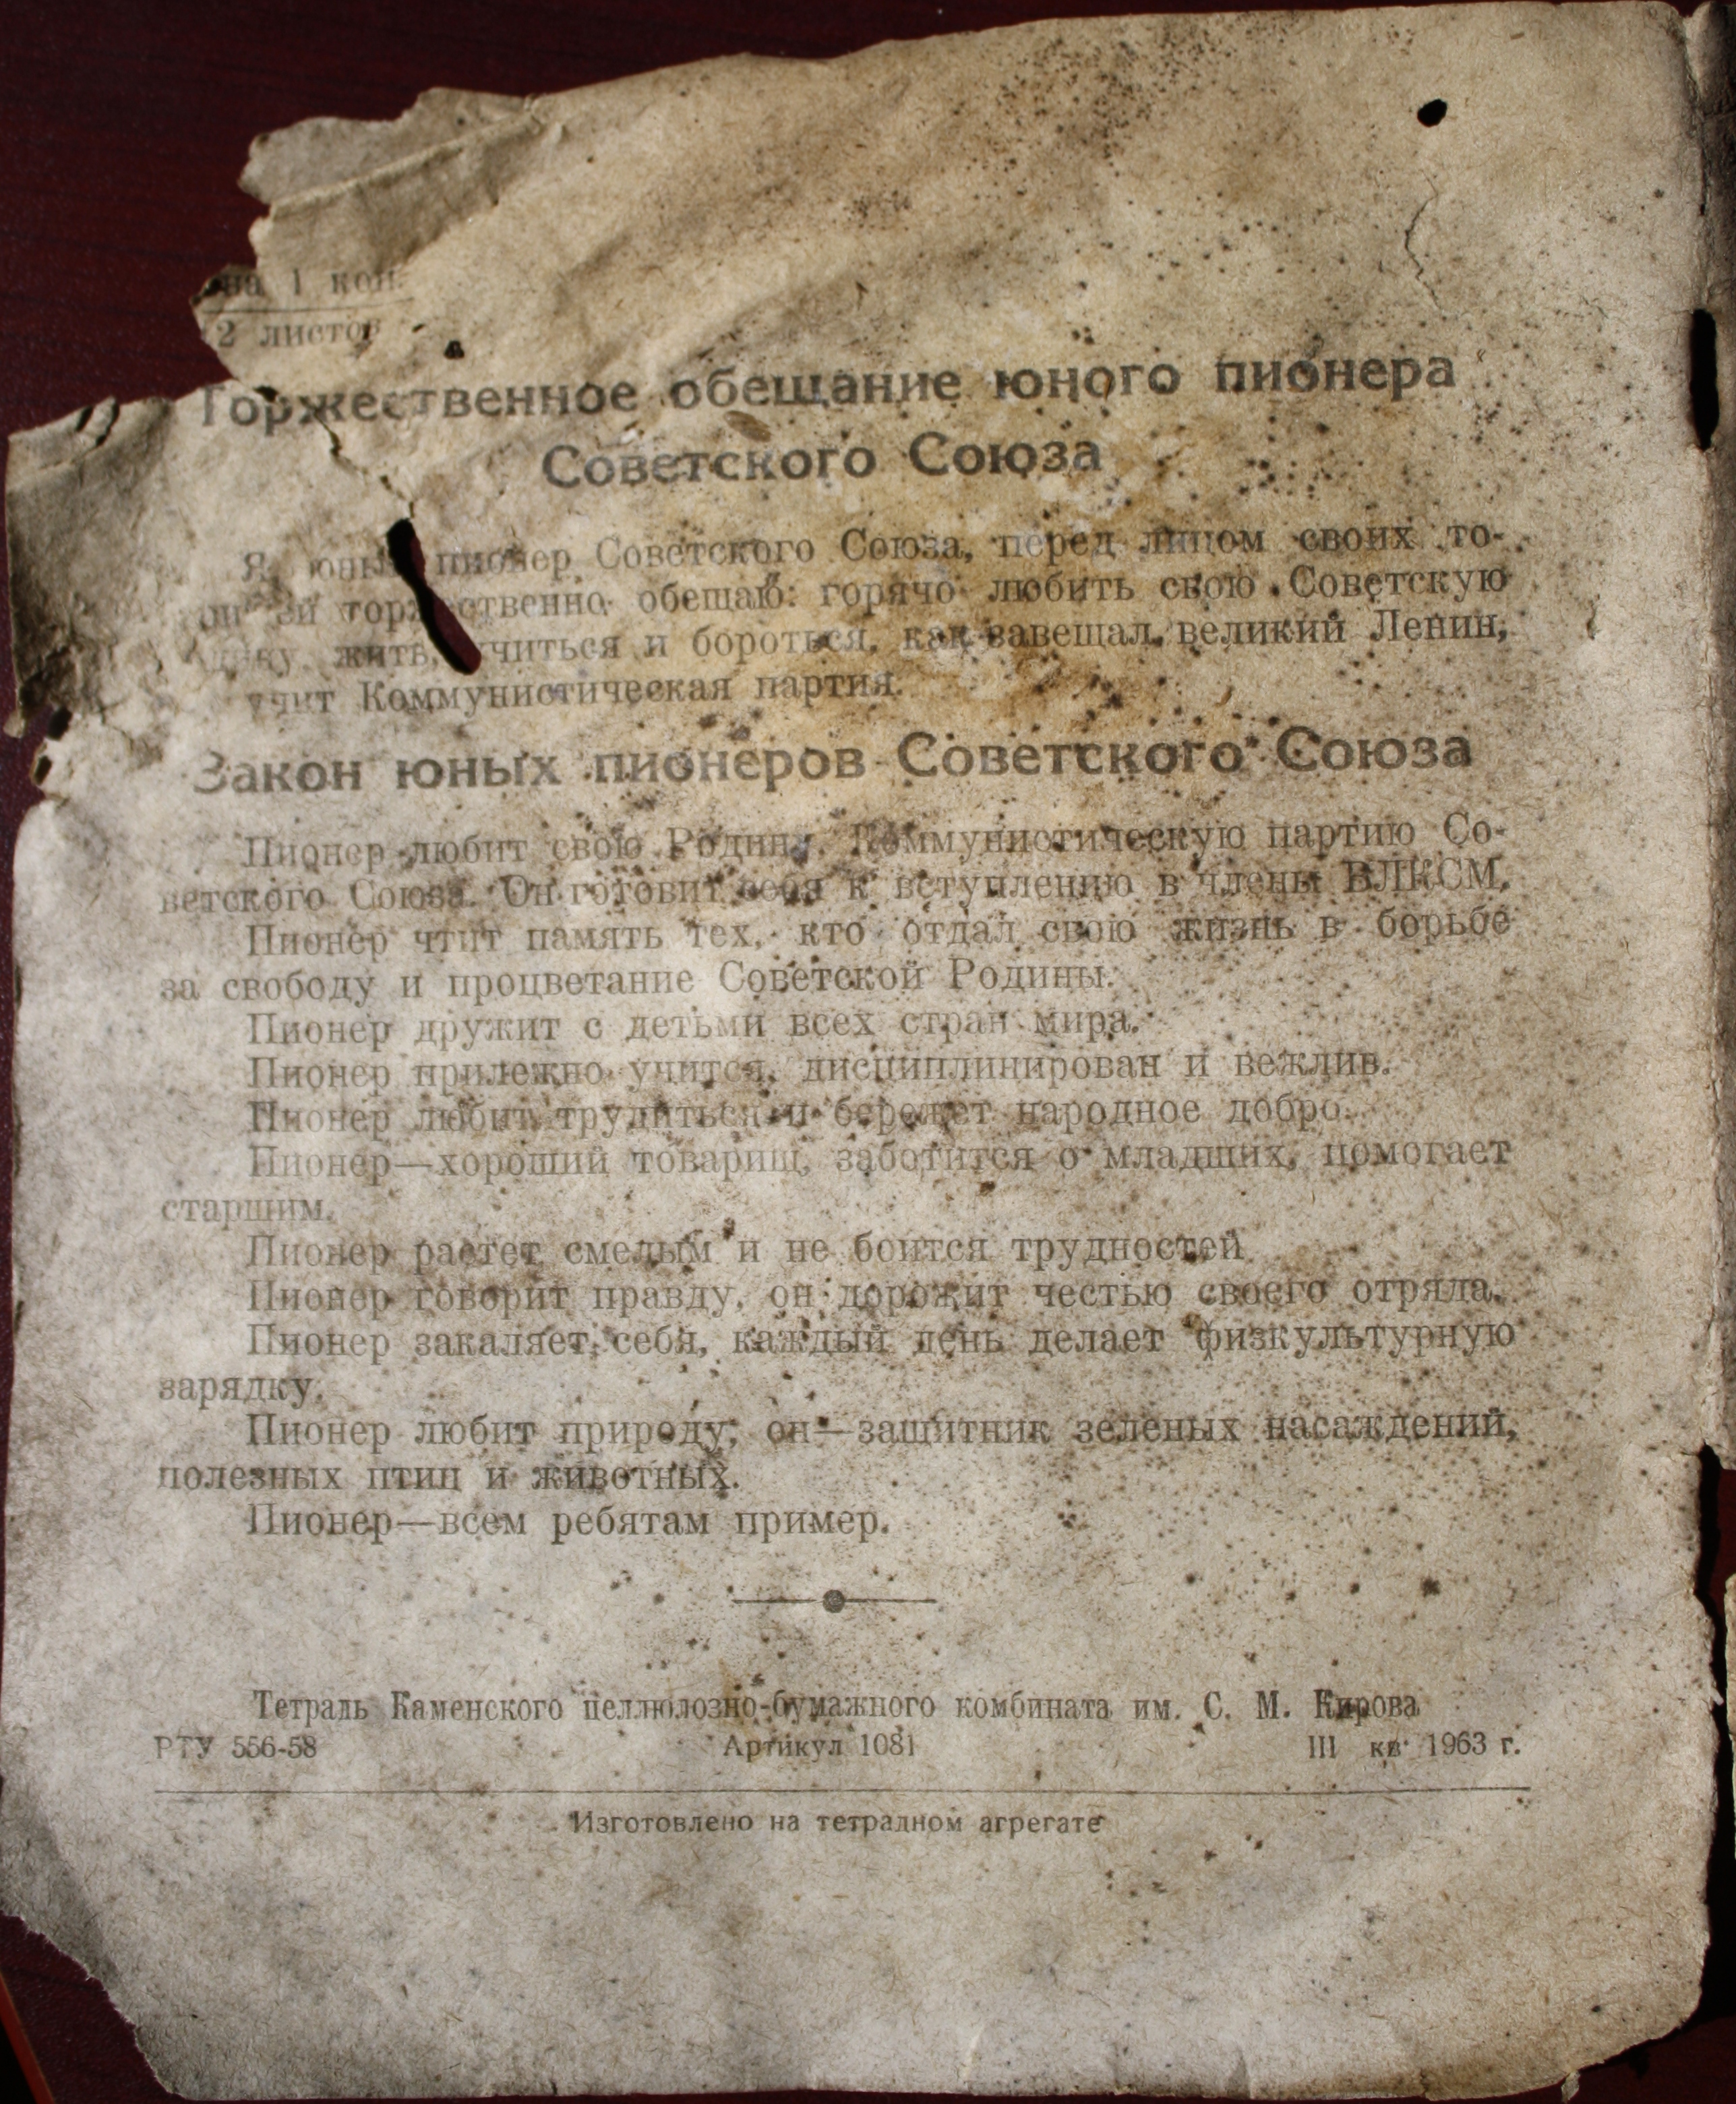 на 1 коп.
2 листов
Торжественное обещание юного пионера
Советского Союза
Я, юный пионер Советского Союза, перед лицом своих то-
торжественно обещаю: горячо любить свою Советскую
жить, учиться и бороться, как завещал великий Ленин,
учит Коммунистическая партия.
Закон юных пионеров Советского Союза
Пионер любит свою Родину, Коммунистическую партию Со-
ветского Союза. Он готовит себя к вступлению в члены ВЛКСМ.
Пионер чтит память тех, кто отдал свою жизнь в борьбе
за свободу и процветание Советской Родины.
Пионер дружит с детьми всех стран мира.
Пионер прилежно учится, дисциплинирован и вежлив.
Пионер любит трудиться и бережет народное добро.
Пионер—хороший товарищ, заботится о младших, помогает
старшим.
Пионер растет смелым и не боится трудностей
Пионер говорит правду, он дорожит честью своего отряда.
Пионер закаляет себя, каждый день делает физкультурную
зарядку.
Пионер любит природу; он—защитник зеленых насаждений,
полезных птиц и животных.
Пионер—всем ребятам пример.
Тетрадь Каменского целлюлозно-бумажного комбината им. С. М. Кирова
РТУ 556-58 Артикул 1081 III кв 1963 г.
Изготовлено на тетрадном агрегате